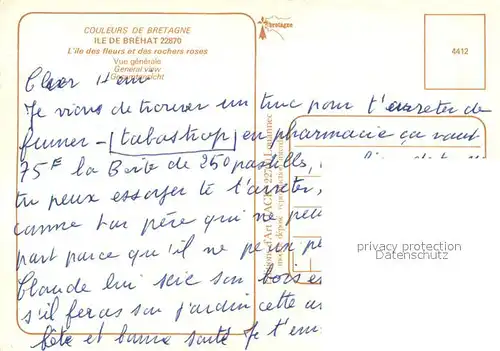 COULEURS DE BRETAGNE
ILE DE BRÉHAT 22870
L'île des fleurs et des rochers roses
Vue générale
General view
Gesamtansicht
bretagne
4412
Cher
Je viens de trouver un truc pour t'arreter de
fumer - (tabastop) en pharmacie ça vaut
75F la Boite de 250 pastilles,
tu peux essayer de t'arreter,
comme ton père qui ne peu
part parce qu'il ne peux pe
Claude lui scie son bois es
s'il feras son jardin cette an
fête et bonne santé Je t'em
privacy protection
Datenschutz